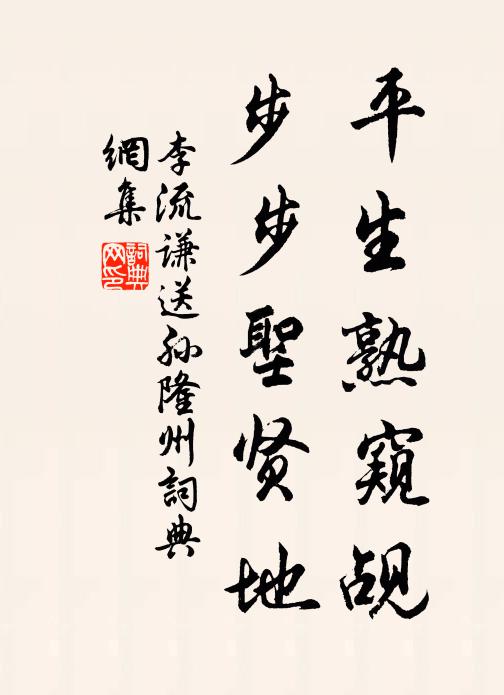 平生熟窥觇
步步聖贤地
李流谦送孙隆州詞典
網集
詞典网印